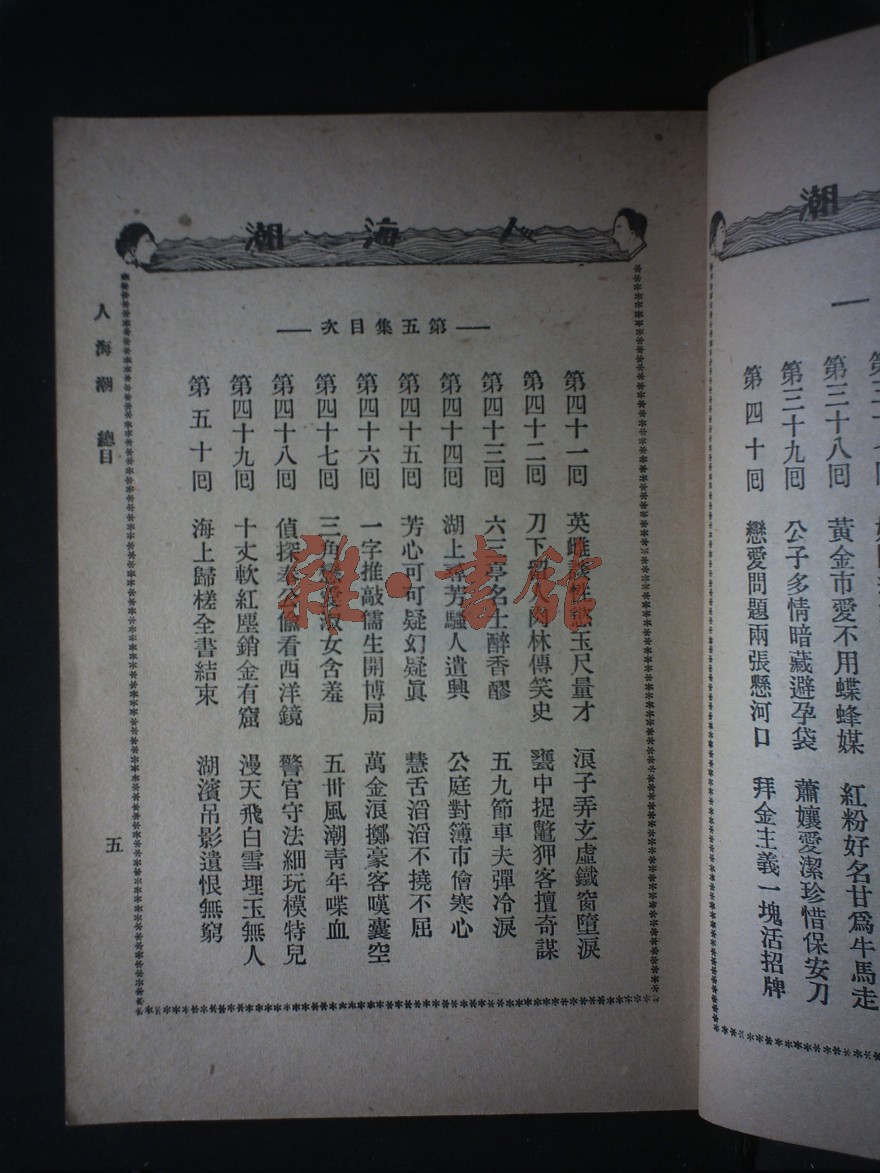 潮
第三十八回 黃金市愛不用蝶蜂媒 紅粉好名甘爲牛馬走
第三十九回 公子多情暗藏避孕袋 蕭孃愛潔珍惜保安刀
第四十回 戀愛問題兩張懸河口 拜金主義一塊活招牌
人海潮
第五集目次
第四十一回 英雌談性慾玉尺量才 浪子弄玄虛鐵窗墮淚
第四十二回 刀下留人肉林傳笑史 甕中捉鼈狎客擅奇謀
第四十三回 六三亭名士醉香醪 五九節車夫彈冷淚
第四十四回 湖上尋芳騷人遣興 公庭對簿市儈寒心
第四十五回 芳心可可疑幻疑眞 慧舌滔滔不撓不屈
第四十六回 一字推敲儒生開博局 萬金浪擲豪客嘆囊空
第四十七回 三角戀愛淑女含羞 五卅風潮青年喋血
第四十八回 偵探奉公偷看西洋鏡 警官守法細玩模特兒
第四十九回 十丈軟紅塵銷金有窟 漫天飛白雪埋玉無人
第五十回 海上歸槎全書結束 湖濱吊影遺恨無窮
人海潮 總目
五
雜·書館